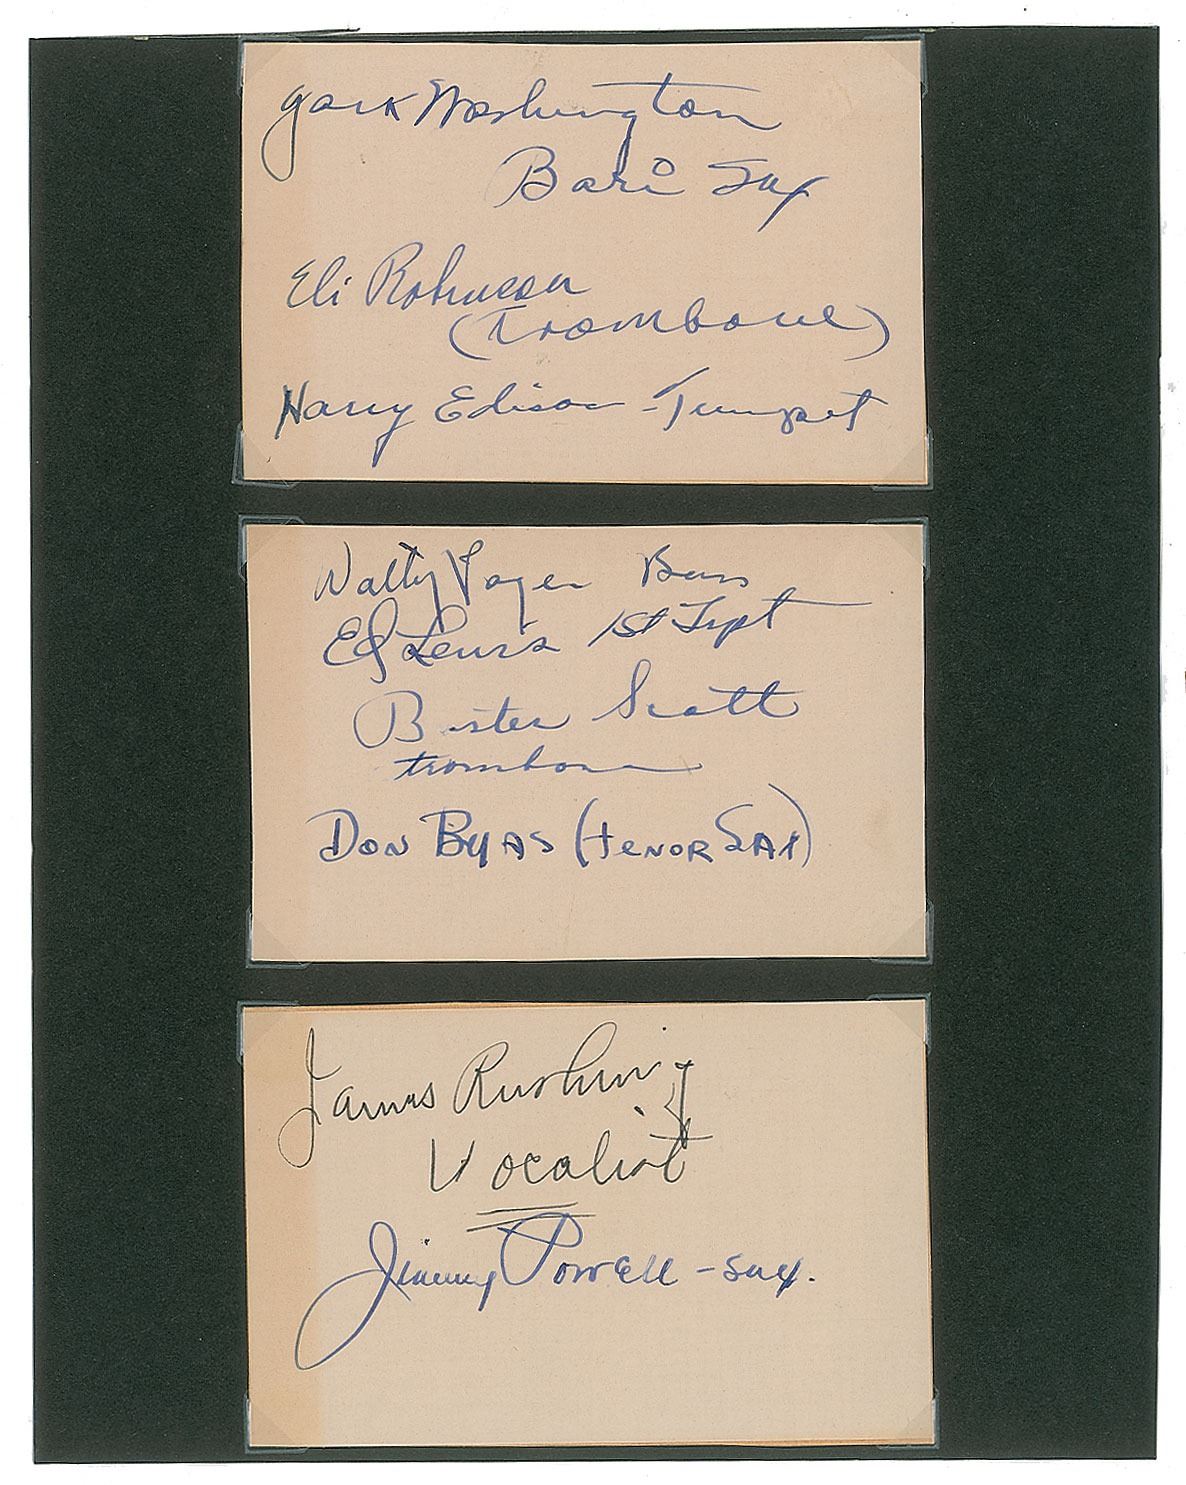 Jack Washington
Bari Sax
Eli Robinson
(Trombone)
Harry Edison - Trumpet
Walter Page Bass
Ed Lewis 1st Trpt
Buster Scott
trombone
Don Byas (tenor Sax)
James Rushing
Vocalist
Jimmy Powell - sax.